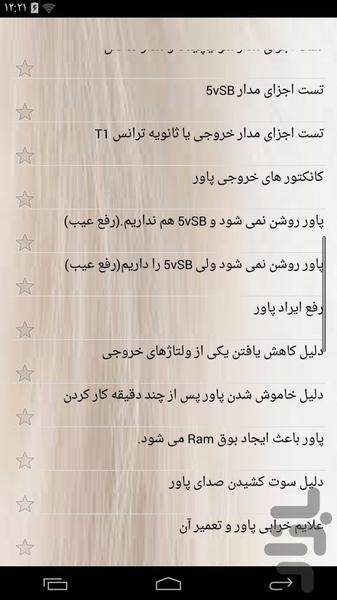 ۱۲:۲۱
تست اجزای مدار 5vSB
تست اجزای مدار خروجی یا ثانویه ترانس T1
کانکتور های خروجی پاور
پاور روشن نمی شود و 5vSB هم نداریم.(رفع عیب)
پاور روشن نمی شود ولی 5vSB را داریم(رفع عیب)
رفع ایراد پاور
دلیل کاهش یافتن یکی از ولتاژهای خروجی
دلیل خاموش شدن پاور پس از چند دقیقه کار کردن
پاور باعث ایجاد بوق Ram می شود.
دلیل سوت کشیدن صدای پاور
علایم خرابی پاور و تعمیر آن
بازار